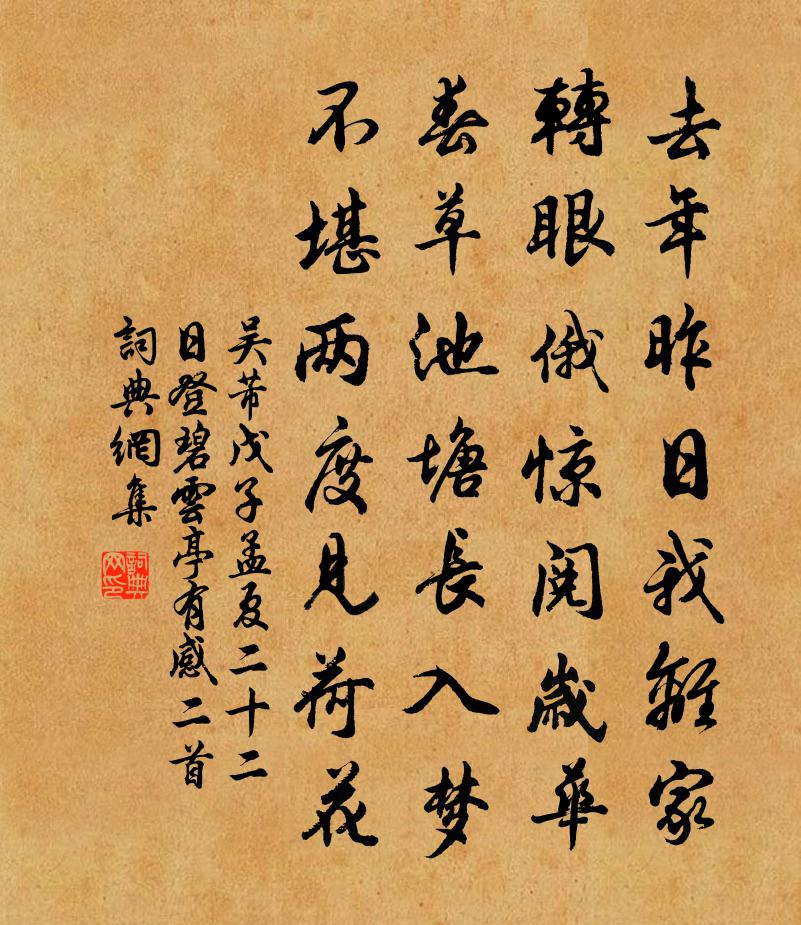 去年昨日我離家
轉眼俄惊閱歲華
春草池塘長入梦
不堪两度見荷花
吴芾戊子孟夏二十二
日登碧雲亭有感二首
詞典網集
詞典網印